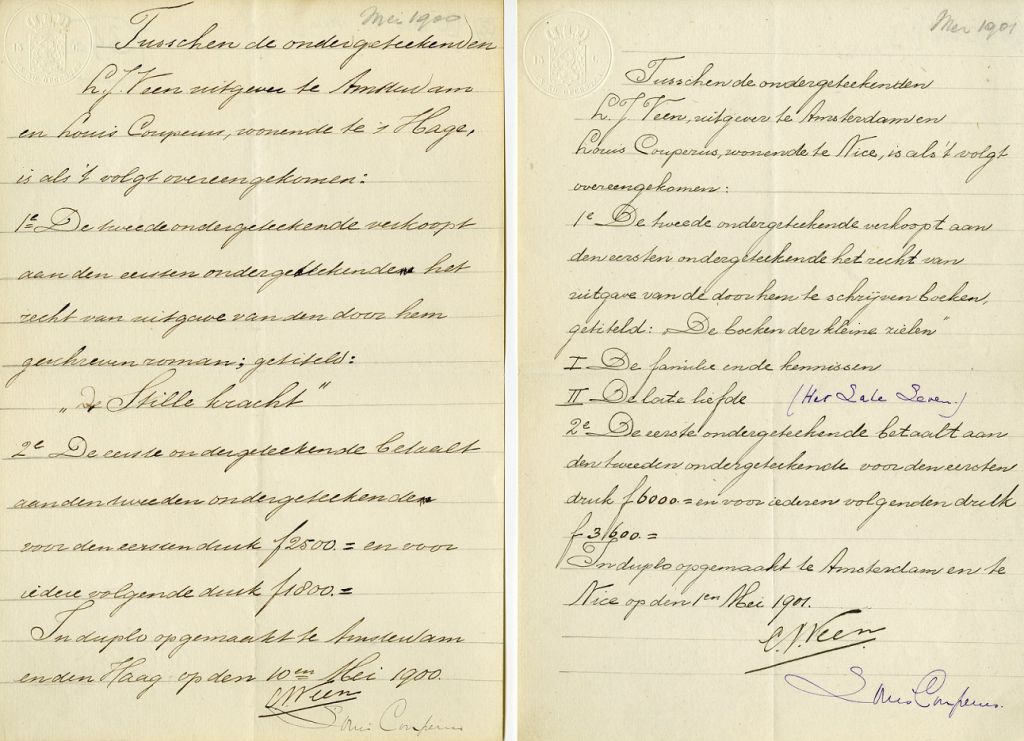 Mei 1900
Tusschen de ondergeteekenden
L. J. Veen uitgever te Amsterdam
en Louis Couperus, wonende te 's Hage,
is als 't volgt overeengekomen:
1e De tweede ondergeteekende verkoopt
aan den eersten ondergeteekenden het
recht van uitgave van den door hem
geschreven roman; getiteld:
„De Stille kracht"
2e De eerste ondergeteekende betaalt
aan den tweeden ondergeteekenden
voor den eersten druk f2500.= en voor
iedere volgende druk f1800.=
In duplo opgemaakt te Amsterdam
en den Haag op den 10en Mei 1900.
L. J. Veen
Louis Couperus
Mei 1901
Tusschen de ondergeteekenden
L. J. Veen, uitgever te Amsterdam en
Louis Couperus, wonende te Nice, is als 't volgt
overeengekomen:
1e De tweede ondergeteekende verkoopt aan
den eersten ondergeteekende het recht van
uitgave van de door hem te schrijven boeken,
getiteld: „De boeken der kleine zielen"
I De familie en de kennissen
II De late liefde (Het Late Leven.)
2e De eerste ondergeteekende betaalt aan
den tweeden ondergeteekende voor den eersten
druk f6000.= en voor iederen volgenden druk
f3600.=
In duplo opgemaakt te Amsterdam en te
Nice op den 1en Mei 1901.
L. J. Veen.
Louis Couperus.